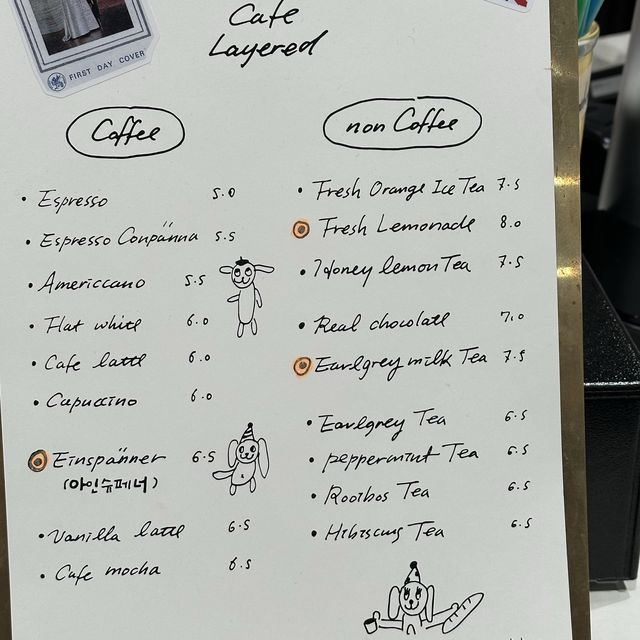 FIRST DAY COVER
Cafe
Layered
Coffee
Espresso 5.0
Espresso Conpänna 5.5
Americcano 5.5
Flat white 6.0
Cafe latte 6.0
Capuccino 6.0
Einspänner 6.5
(아인슈페너)
Vanilla latte 6.5
Cafe mocha 6.5
non Coffee
Fresh Orange Ice Tea 7.5
Fresh Lemonade 8.0
Honey lemon Tea 7.5
Real chocolate 7.0
Earlgrey milk Tea 7.5
Earlgrey Tea 6.5
peppermint Tea 6.5
Rooibos Tea 6.5
Hibiscus Tea 6.5